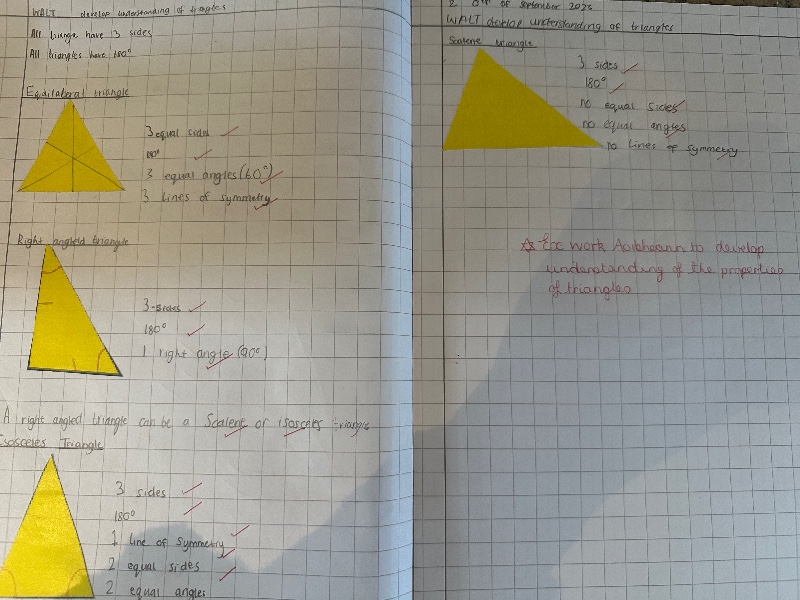 WALT develop understanding of triangles
All triange have 3 sides
All triangles have 180°
Equilateral triangle
3 equal sides
180°
3 equal angles (60°)
3 Lines of symmetry
Right angleld triangle
3-sides
180°
1 right angle (90°)
A right angled triangle can be a Scalent or isosceles triangle
Isosceles Triangle
3 sides
180°
1 line of symmetry
2 equal sides
2 equal angles
of september 2025
WALT develop understanding of triangles
Scalene triangle
3 sides
180°
no equal sides
no equal angles
no Lines of symmetry
Exc work Aoibheann to develop
understanding of the properties
of triangles